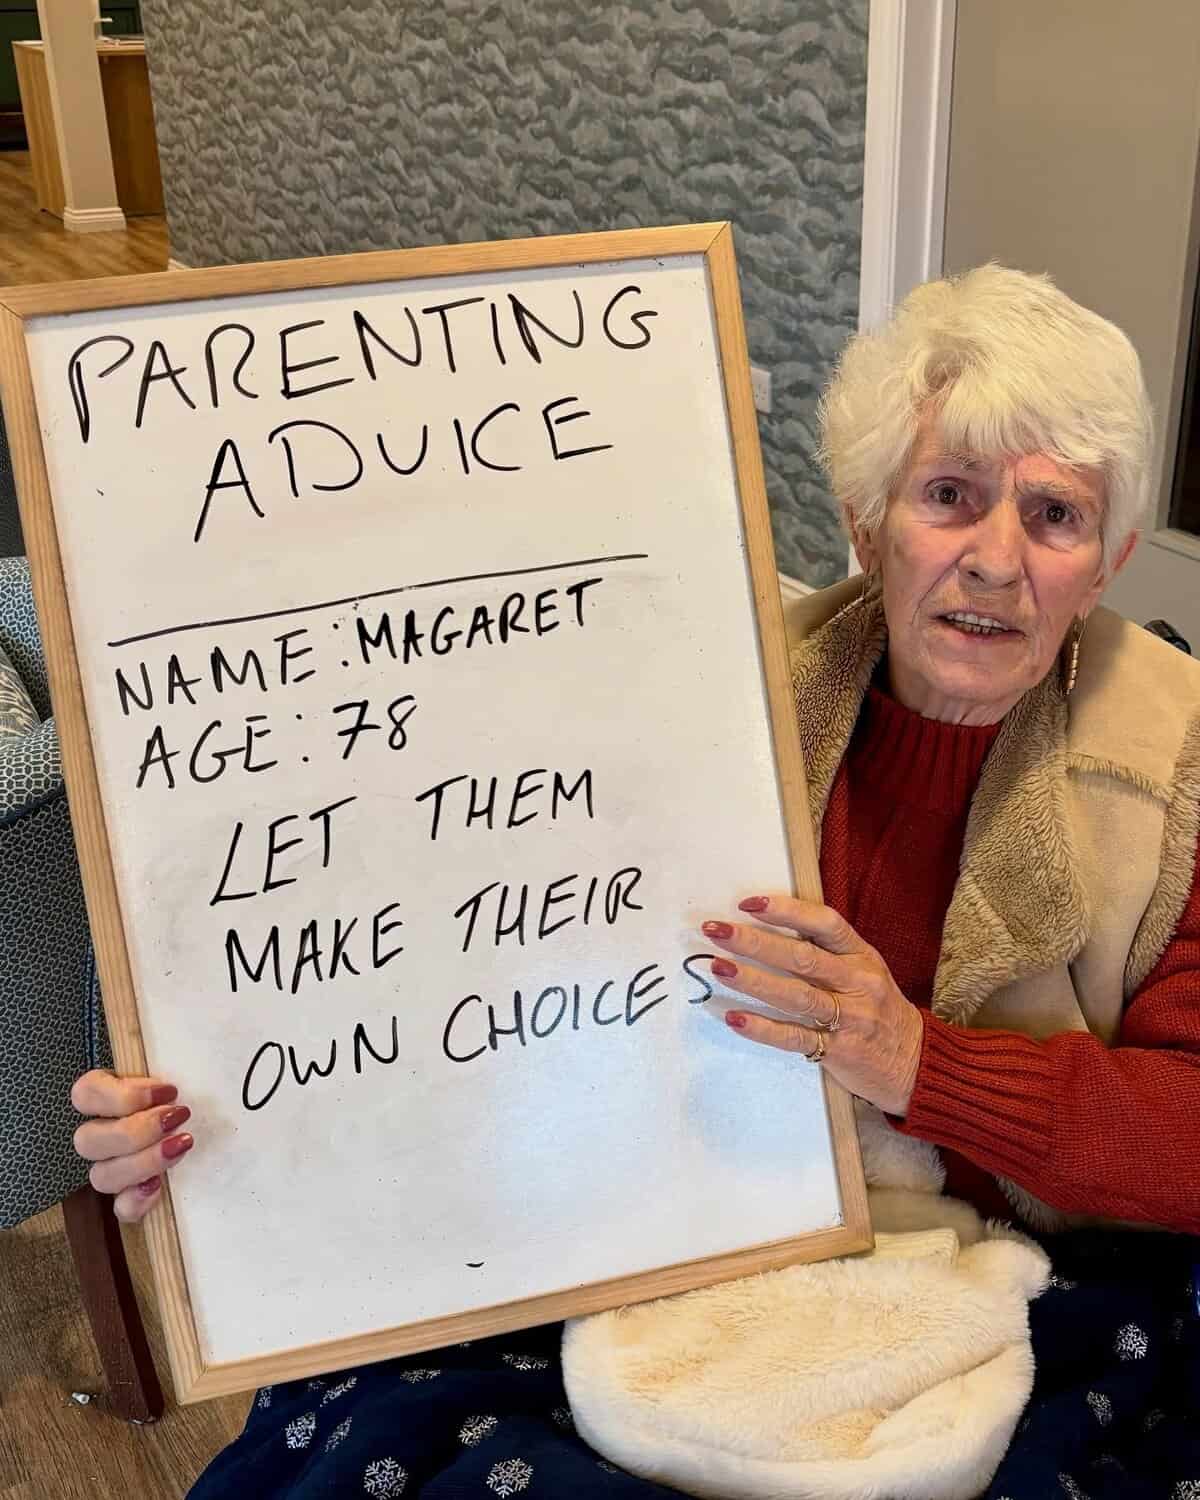 PARENTING
ADVICE
NAME: MAGARET
AGE: 78
LET THEM
MAKE THEIR
OWN CHOICES